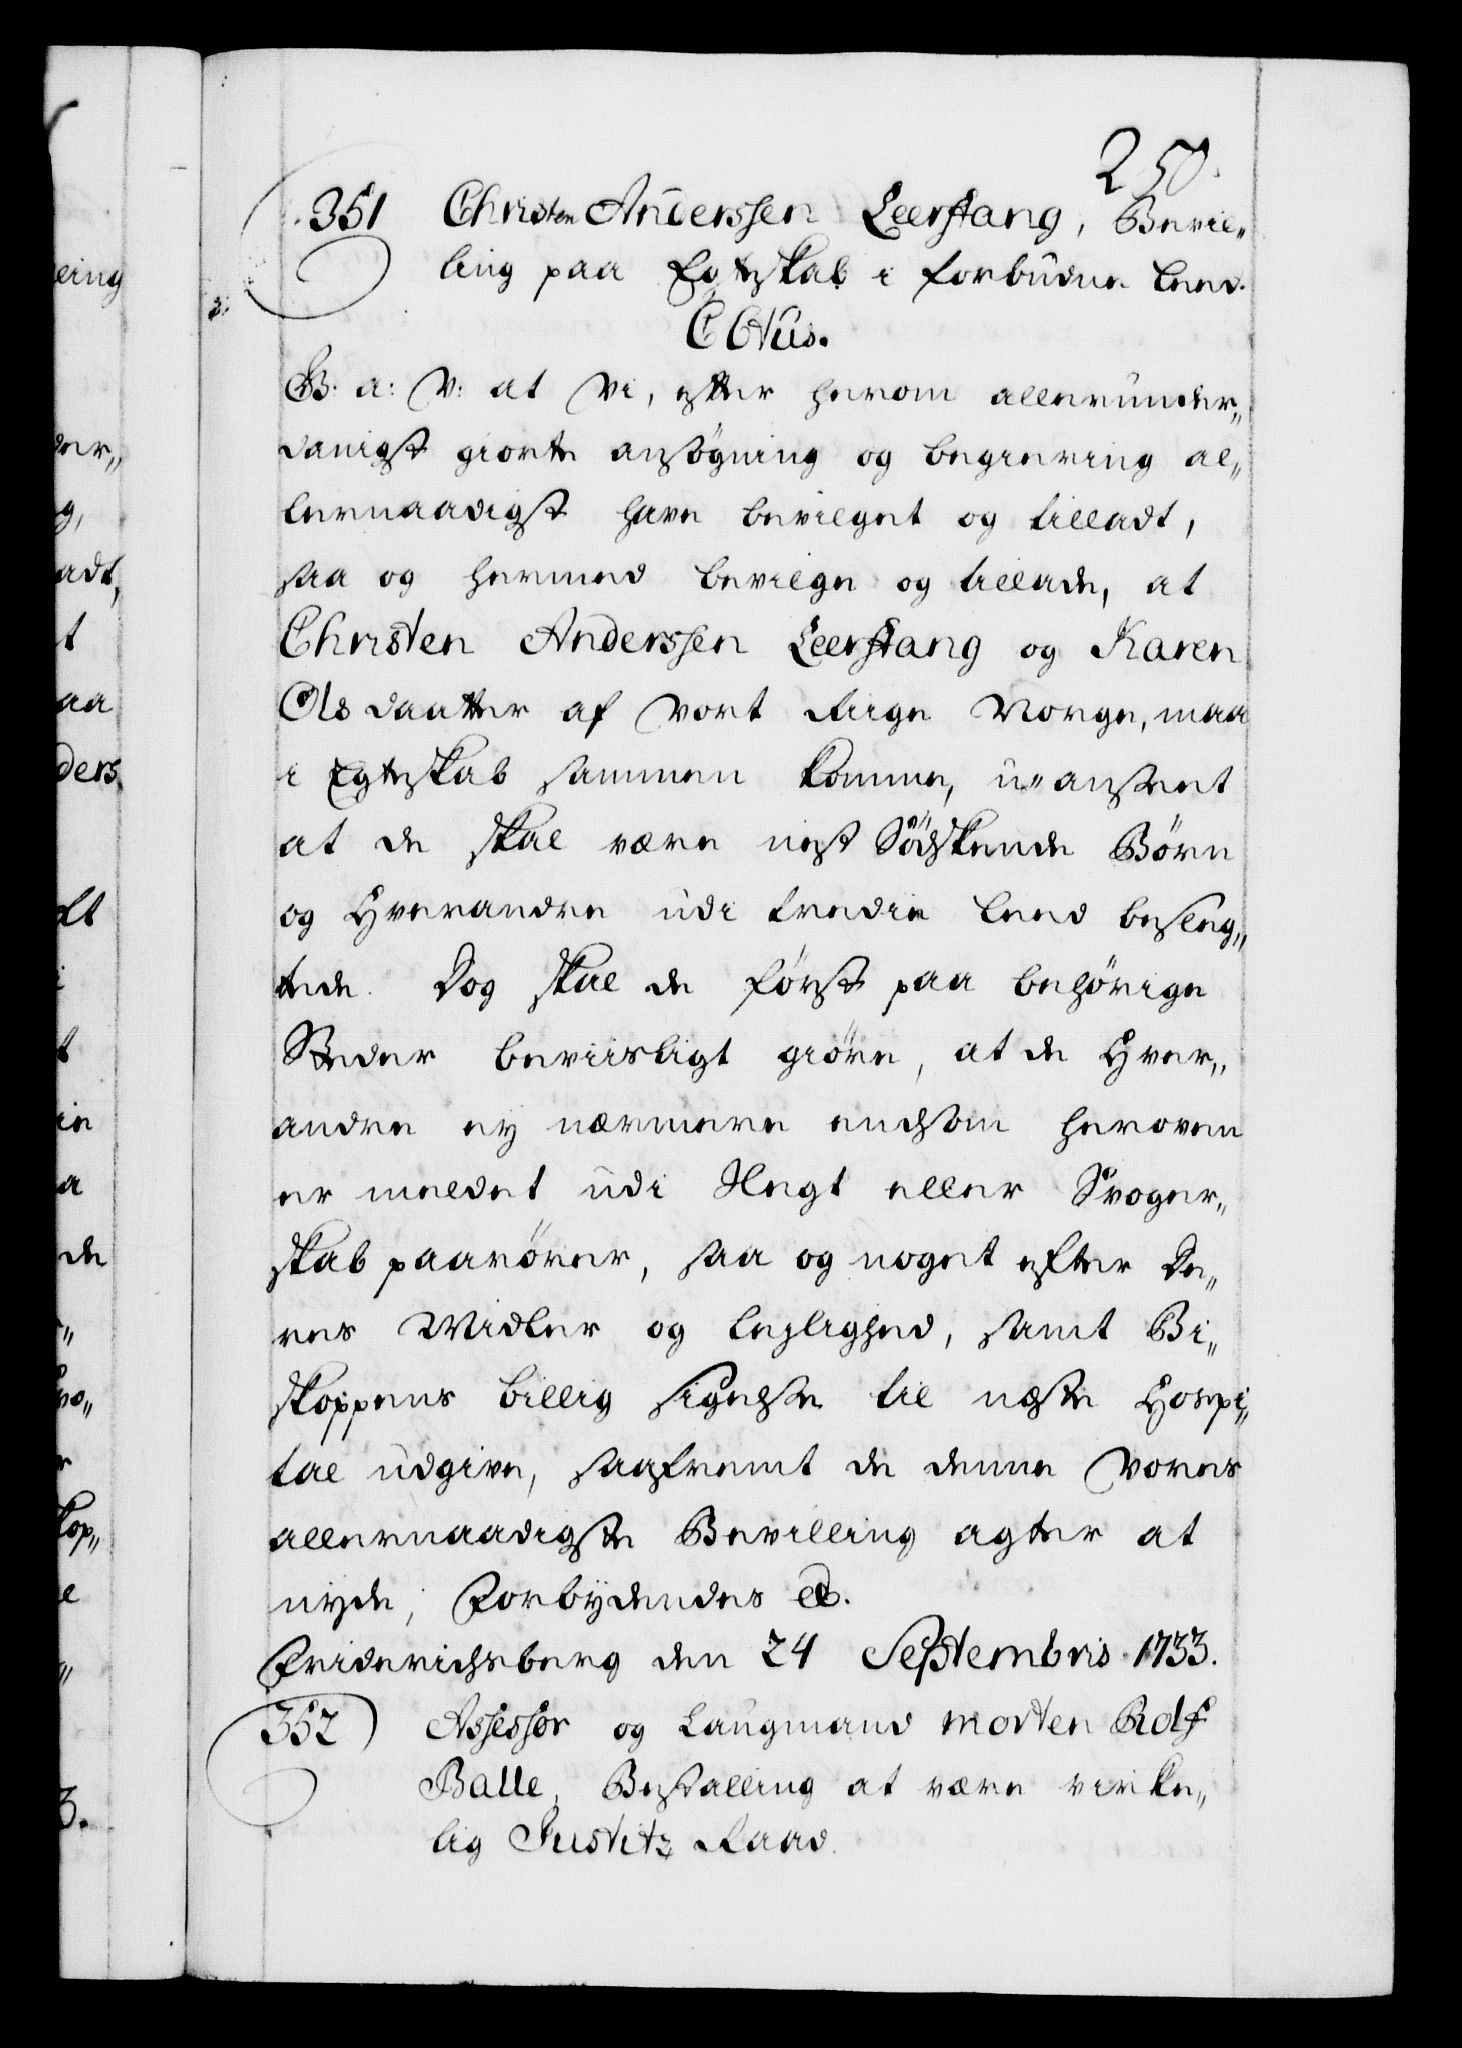 250.
351 Christen Anderssen Leerstang, Bevil„
ling paa Egteskab i forbudne Leed.
C 6tus.
G. a: V: at Vi, efter herom allerunder„
danigst giorte ansögning og begiering al„
lernaadigst have bevilget og tilladt,
saa og hermed bevilge og tillade, at
Christen Anderssen Leerstang og Karen
Ols daatter af vort Riige Norge, maa
i Egteskab sammen komme, u„anseet
at de skal være nest Södskende Börn
og Hverandre udi tredie Leed besleg„
tede. Dog skal de först paa behörige
Steder beviisligt giöre, at de Hver„
andre ey nærmere end som heroven
er meldet udi Slegt eller Svoger„
skab paarörer, saa og noget efter De„
res Midler og lejlighed, samt Bi„
skoppens billig sigelse til neste Hospi„
tal udgive, saafremt de denne Vores
allernaadigste Bevilling agter at
nyde, Forbydendes etc.
Friderichsberg den 24 Septembris 1733.
352) Assessor og Laugmand Morten Rolf
Balle, Bestalling at være virke„
lig Justitz Raad.
eing
der„
g,
adt,
t
aa
ders
lt
i
t
ie
a
de
„
vo„
r
kop„
e
„
3.